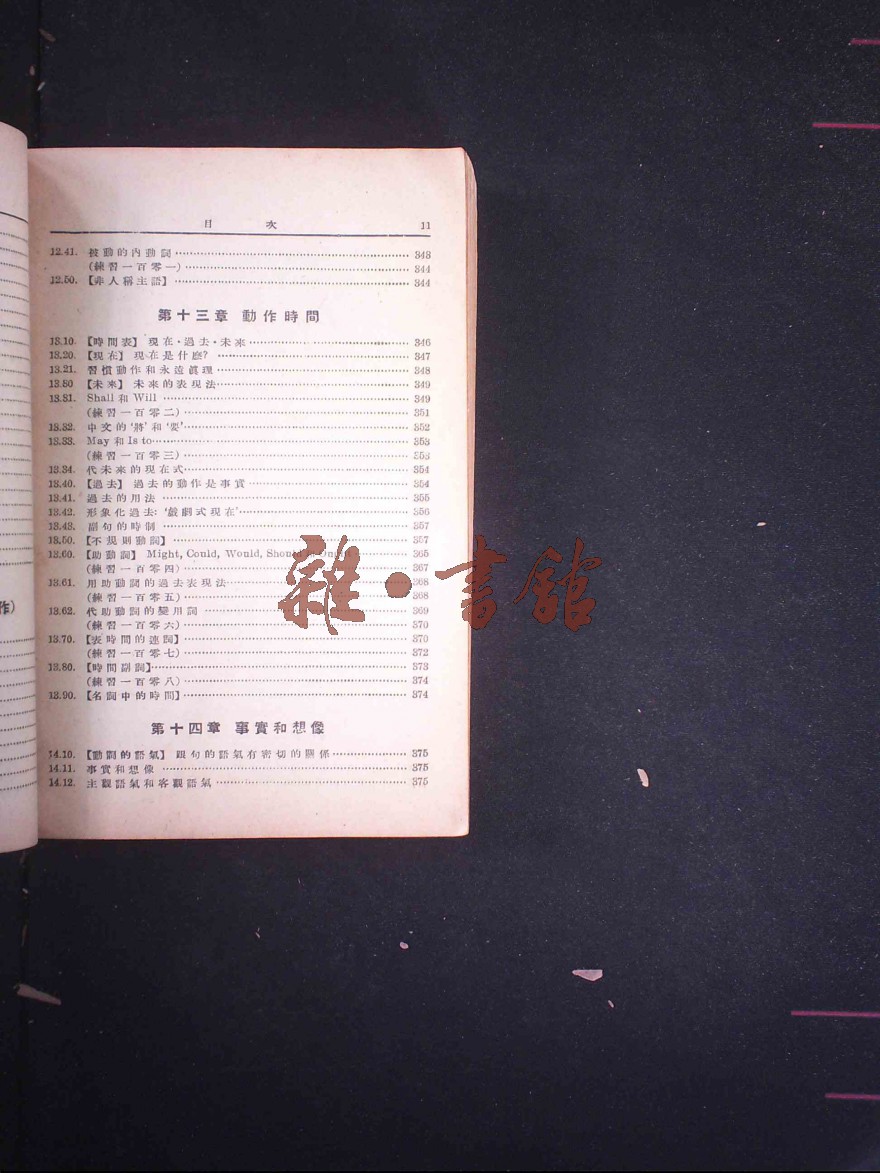 目 次 11
12.41. 被動的內動詞 343
(練習一百零一) 344
12.50. 【非人稱主語】 344
第十三章 動作時間
13.10. 【時間表】 現在·過去·未來 346
13.20. 【現在】 現在是什麼? 347
13.21. 習慣動作和永遠眞理 348
13.30 【未來】 未來的表現法 349
13.31. Shall 和 Will 349
(練習一百零二) 351
13.32. 中文的‘將’和‘要’ 352
13.33. May 和 Is to 353
(練習一百零三) 353
13.34. 代未來的現在式 354
13.40. 【過去】 過去的動作是事實 354
13.41. 過去的用法 355
13.42. 形象化過去: ‘戲劇式現在’ 356
13.43. 副句的時制 357
13.50. 【不規則動詞】 357
13.60. 【助動詞】 Might, Could, Would, Should 365
(練習一百零四) 367
13.61. 用助動詞的過去表現法 368
(練習一百零五) 368
13.62. 代助動詞的變用詞 369
(練習一百零六) 370
13.70. 【表時間的連詞】 370
(練習一百零七) 372
13.80. 【時間副詞】 373
(練習一百零八) 374
13.90. 【名詞中的時間】 374
第十四章 事實和想像
14.10. 【動詞的語氣】 跟句的語氣有密切的關係 375
14.11. 事實和想像 375
14.12. 主觀語氣和客觀語氣 375
作)
雜·書館